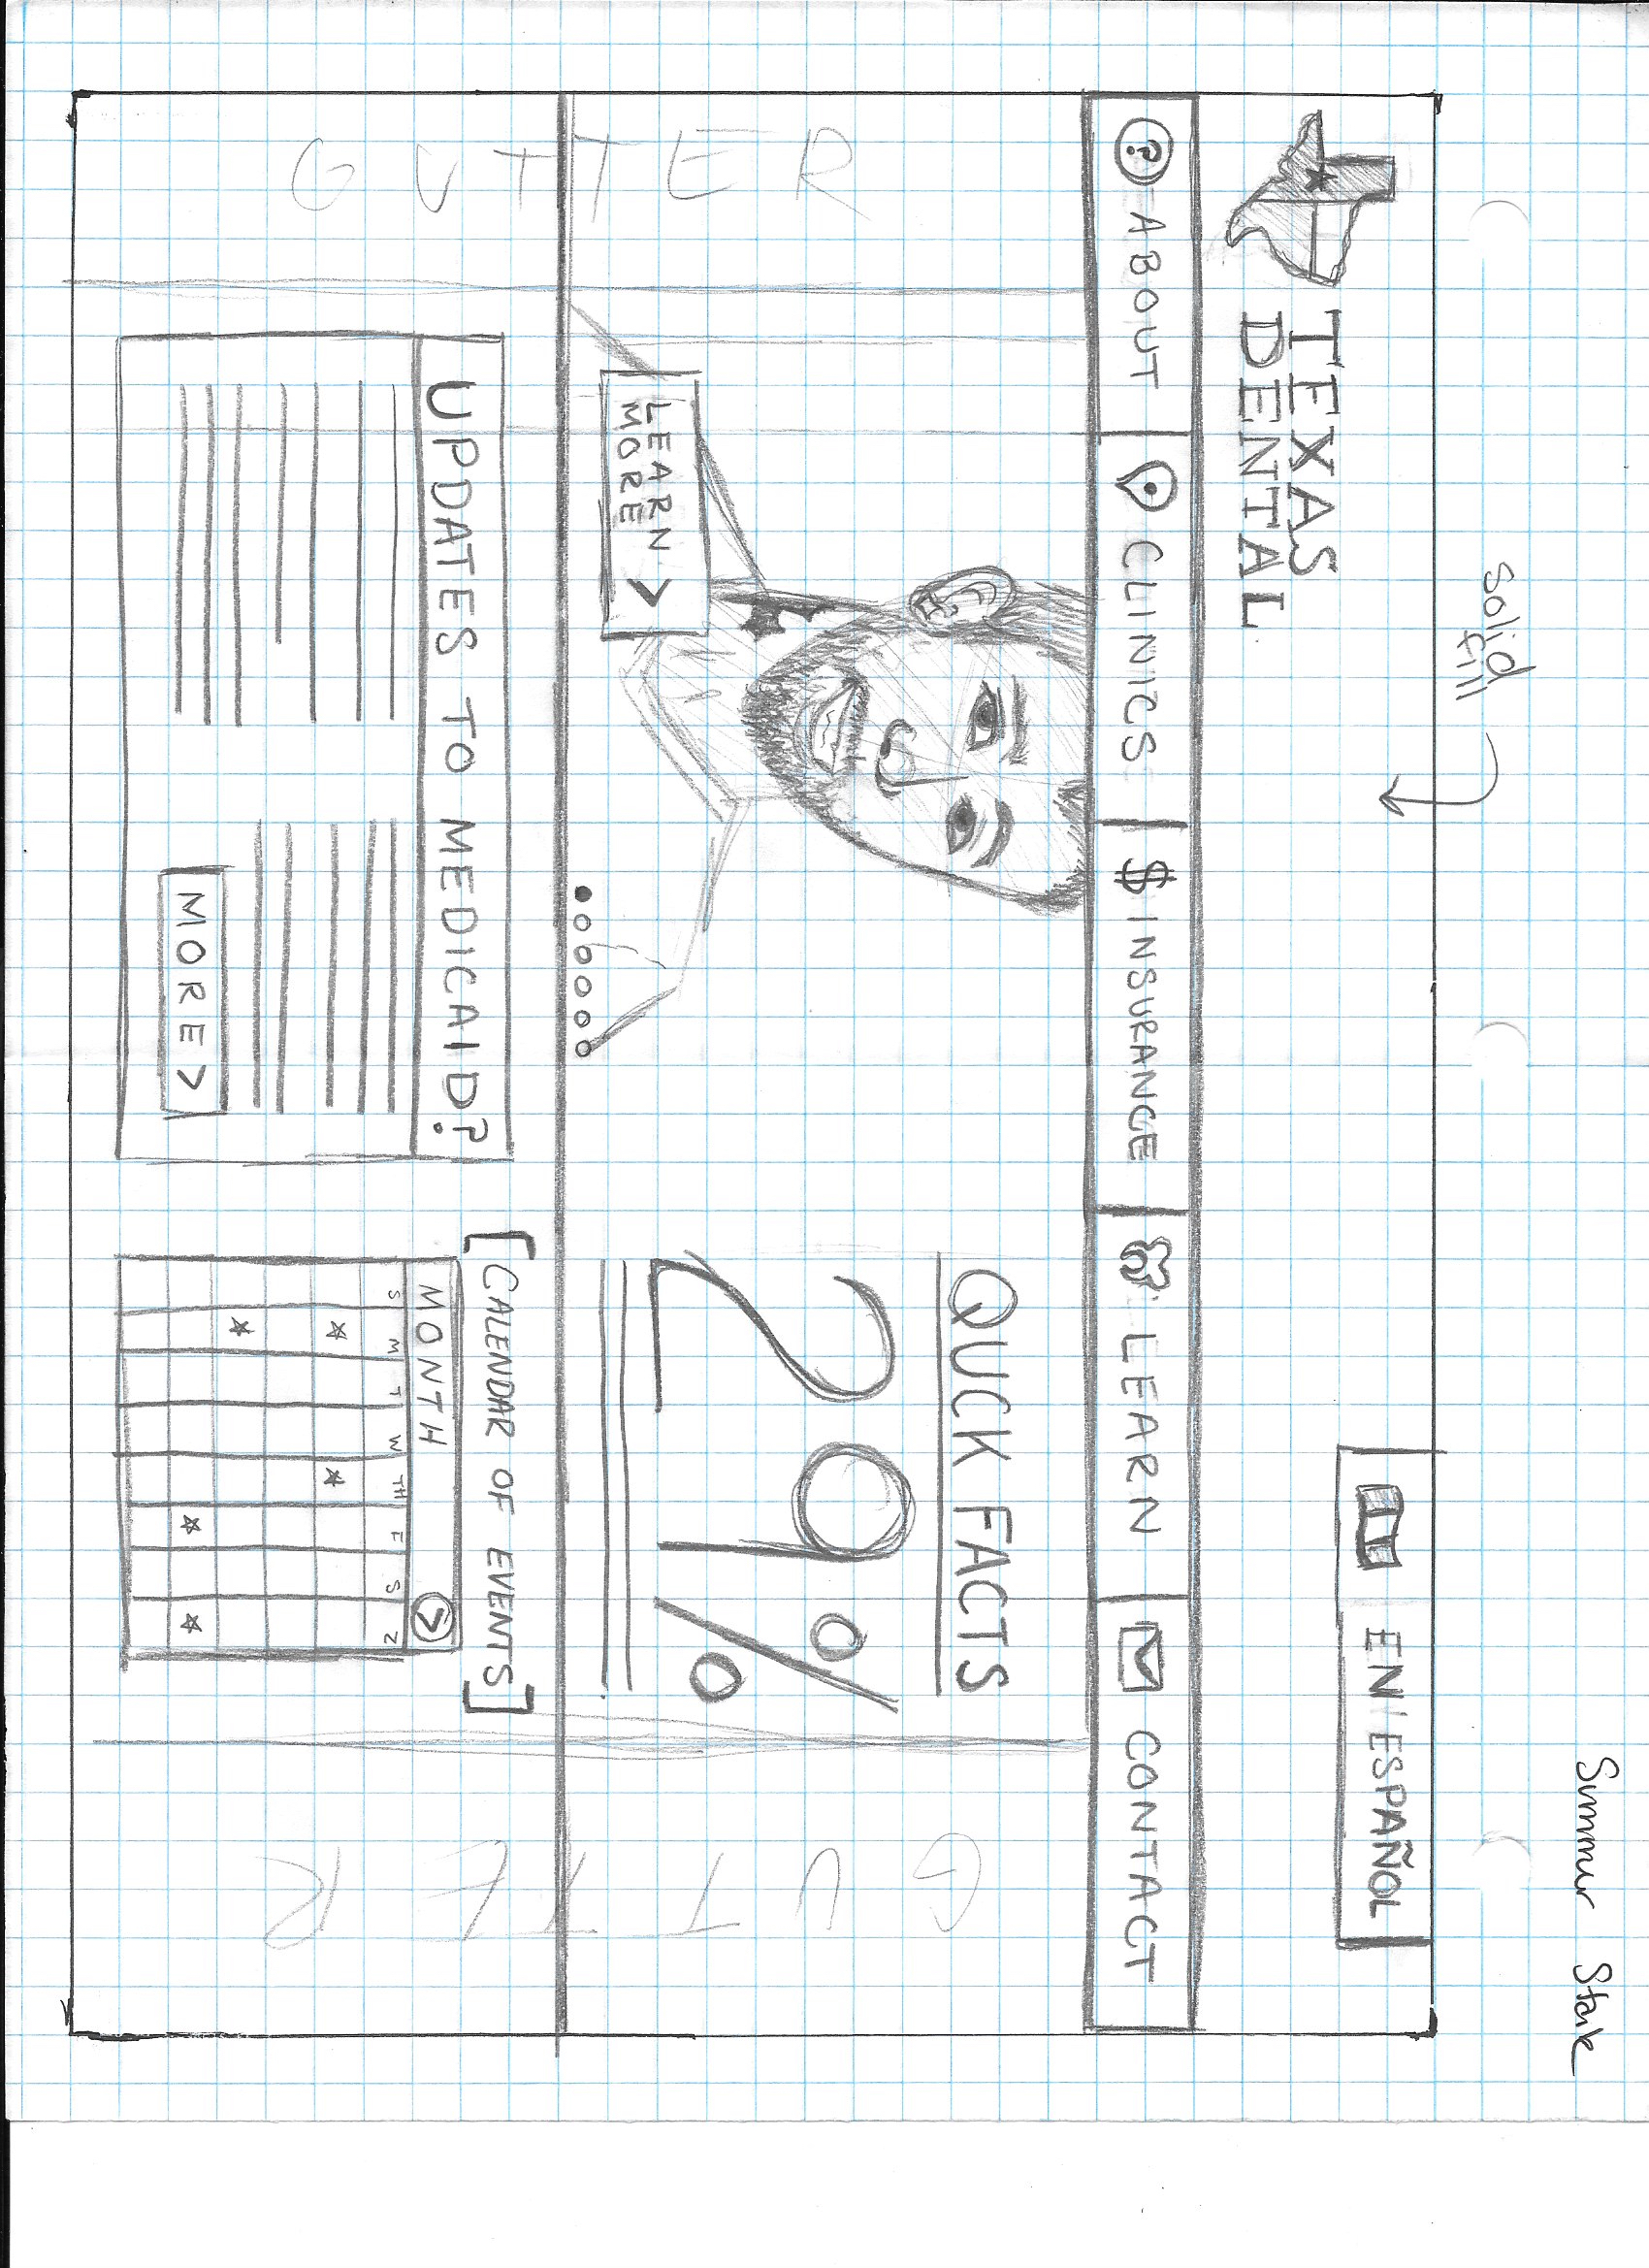 Summer Stark
solid
fill
EN ESPAÑOL
TEXAS
DENTAL
? ABOUT
CLINICS
$ INSURANCE
LEARN
CONTACT
GUTTER
LEARN
MORE >
QUCK FACTS
29%
GUTTER
UPDATES TO MEDICAID?
MORE >
[CALENDAR OF EVENTS]
MONTH >
S M T W TH F S